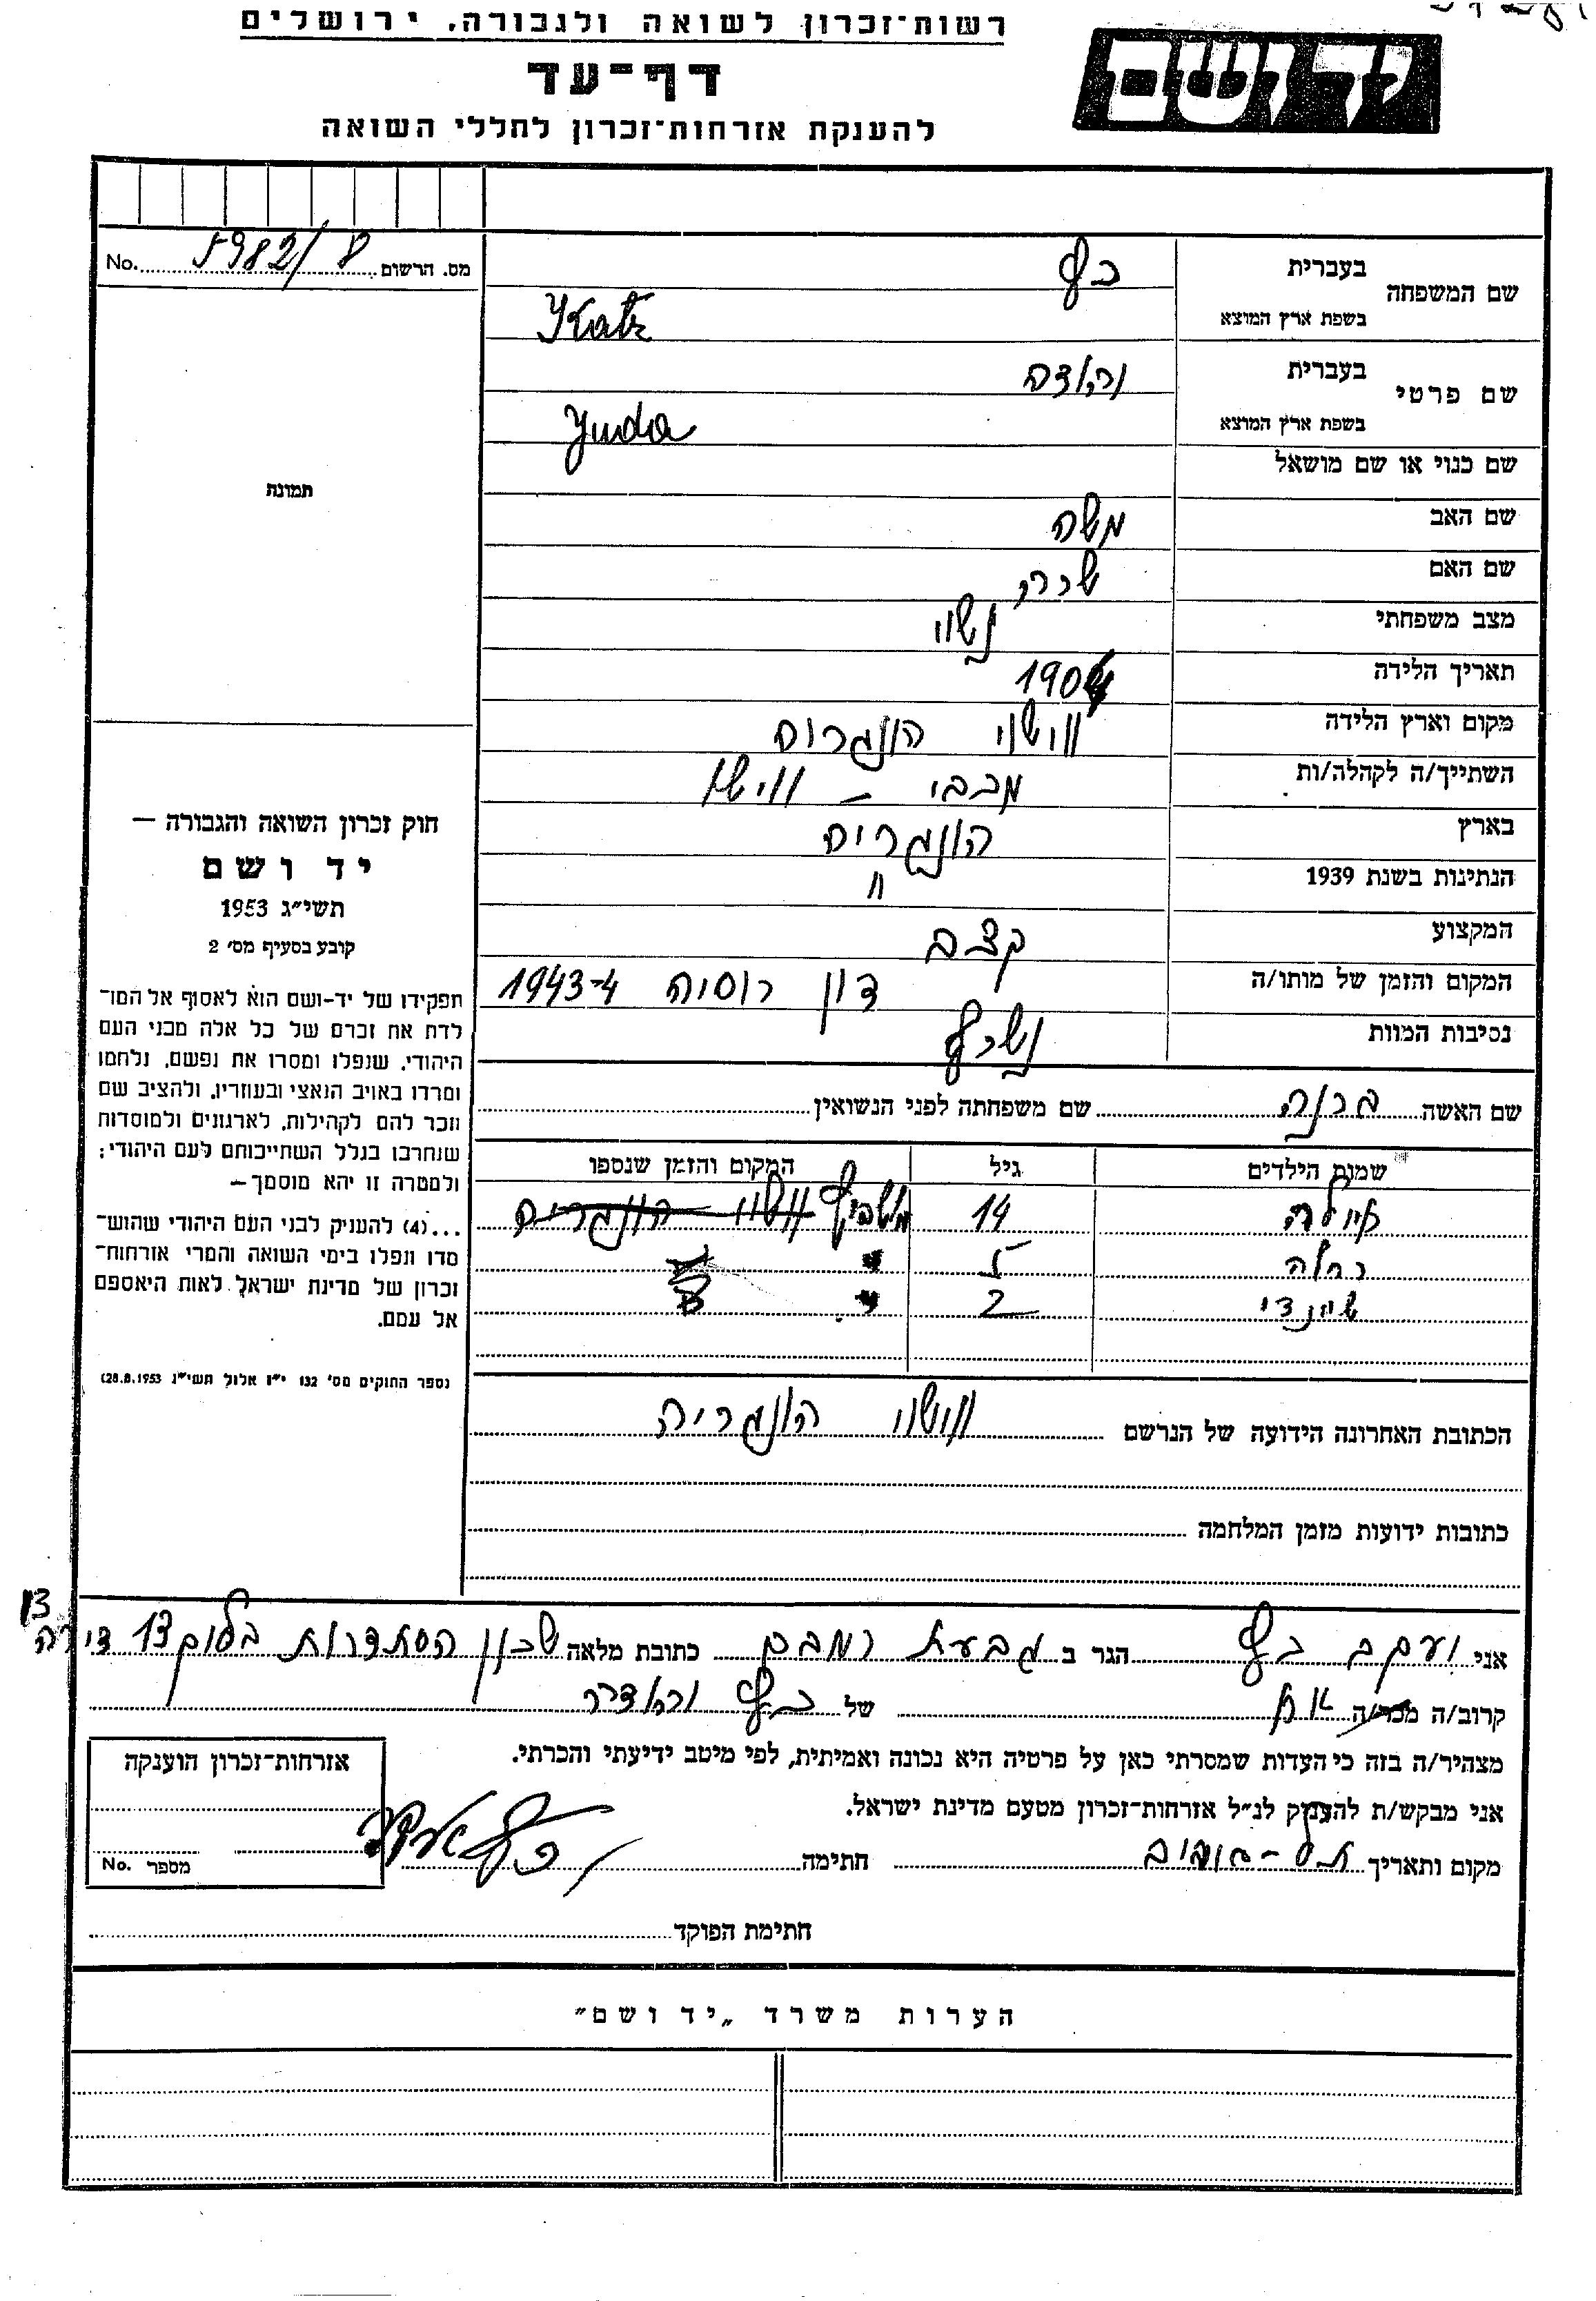 רשות־זכרון לשואה ולגבורה, ירושלים
דף־עד
להענקת אזרחות־זכרון לחללי השואה
יד ושם
מס. הרשום 5982/8 No.
שם המשפחה
בעברית כץ
בשפת ארץ המוצא Katz
שם פרטי
בעברית יהודה
בשפת ארץ המוצא Yuda
שם כנוי או שם מושאל
שם האב משה
שם האם
מצב משפחתי נשוי
תאריך הלידה 1904
מקום וארץ הלידה ווישוי הונגריה
השתייך/ה לקהלה/ות מכבי - ווישוי
בארץ הונגריה
הנתינות בשנת 1939 "
המקצוע קצב
המקום והזמן של מותו/ה דון רוסיה 1943-4
נסיבות המוות נשרף
שם האשה ברנה שם משפחתה לפני הנשואין
שמות הילדים גיל המקום והזמן שנספו
אילה 14 הונגריה
רחלה 5 "
2 "
הכתובת האחרונה הידועה של הנרשם ווישוי הונגריה
כתובות ידועות מזמן המלחמה
תמונת
חוק זכרון השואה והגבורה —
יד ושם
תשי״ג 1953
קובע בסעיף מס׳ 2
תפקידו של יד-ושם הוא לאסוף אל המו־
לדת את זכרם של כל אלה מבני העם
היהודי, שנפלו ומסרו את נפשם, נלחמו
ומרדו באויב הנאצי ובעוזריו, ולהציב שם
וזכר להם לקהילות, לארגונים ולמוסדות
שנחרבו בגלל השתייכותם לעם היהודי;
ולמטרה זו יהא מוסמך—
...(4) להעניק לבני העם היהודי שהוש־
מדו ונפלו בימי השואה והמרי אזרחות־
זכרון של מדינת ישראל לאות היאספם
אל עמם.
(ספר החוקים מס׳ 132 י״ז אלול תשי״ג 28.8.1953)
אני יעקב כץ הגר ב גבעת רמבם כתובת מלאה שכון הסתדרות בלוק 13 דירה 13
קרוב/ה מכר/ה אח של כץ יהודה
מצהיר/ה בזה כי העדות שמסרתי כאן על פרטיה היא נכונה ואמיתית, לפי מיטב ידיעתי והכרתי.
אני מבקש/ת להעניק לנ״ל אזרחות־זכרון מטעם מדינת ישראל.
מקום ותאריך תל-אביב חתימה כץ יעקב
אזרחות־זכרון הוענקה
מספר No.
חתימת הפוקד
הערות משרד „יד ושם״